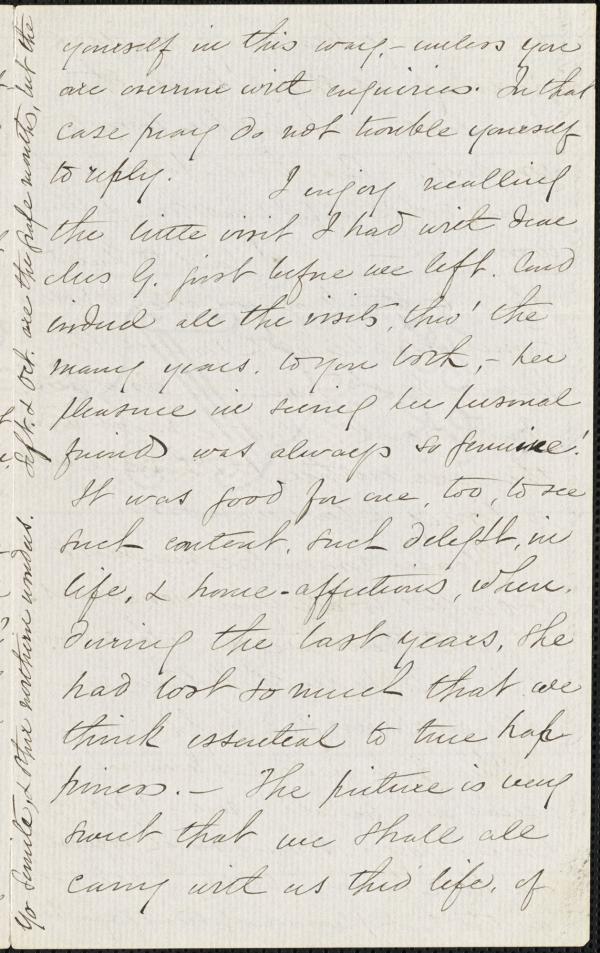 yourself in this way, – unless you
are overrun with enquiries. In that
case pray do not trouble yourself
to reply. I enjoy recalling
the little visit I had with dear
Mrs G. just before we left. And
indeed all the visits, thro' the
many years, to you both, – her
pleasure in seeing her personal
friends was always so genuine!
It was good for one, too, to see
such content, such delight, in
life, & home-affections, when,
during the last years, she
had lost so much that we
think essential to true hap
piness. – The picture is very
sweet that we shall all
carry with us thro life, of
Yo Semite, & other northern wonders. Sept. & Oct. are the safe months, but the